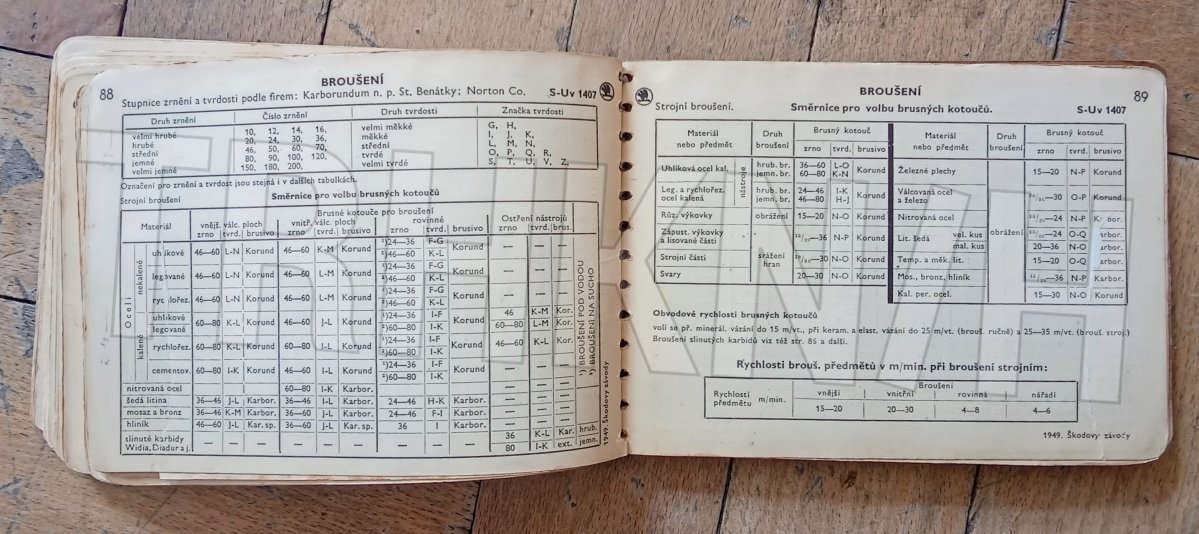 88
BROUŠENÍ
Stupnice zrnění a tvrdosti podle firem: Karborundum n. p. St. Benátky; Norton Co. S-Uv 1407
Druh zrnění Číslo zrnění Druh tvrdosti Značka tvrdosti
velmi hrubé 10, 12, 14, 16, velmi měkké G, H,
hrubé 20, 24, 30, 36, měkké I, J, K,
střední 46, 50, 60, 70, střední L, M, N,
jemné 80, 90, 100, 120, tvrdé O, P, Q, R,
velmi jemné 150, 180, 200, velmi tvrdé S, T, U, V, Z,
Označení pro zrnění a tvrdost jsou stejná i v dalších tabulkách.
Strojní broušení Směrnice pro volbu brusných kotoučů
Brusné kotouče pro broušení
Materiál vnějš. válc. ploch vnitř. válc. ploch rovinné Ostření nástrojů
zrno tvrd. brusivo zrno tvrd. brusivo zrno tvrd. brusivo zrno tvrd. brus.
Oceli
nekalené
uhlíkové 46—60 L-N Korund 46—60 K-M Korund ¹)24—36 F-G Korund — — —
²)46—60 K-L
legované 46—60 L-N Korund 46—60 L-M Korund ¹)24—36 F-G Korund — — —
²)46—60 K-L
rychlořez. 46—60 L-N Korund 46—60 L-M Korund ¹)24—36 F-G Korund — — —
²)46—60 K-L
kalené
uhlíkové 60—80 K-L Korund 46—60 J-L Korund ¹)24—36 I-F Korund 46 K-M Kor.
legované ²)60—80 I-K 60—80 L-M Kor.
rychlořez. 60—80 K-L Korund 46—60 J-L Korund ¹)24—36 I-F Korund 46—60 K-L Kor.
²)60—80 I-K
cementov. 60—80 I-K Korund 46—60 I-L Korund ¹)24—36 I-F Korund — — —
²)60—80 I-K
nitrovaná ocel 60—80 I-K Karbor. — — —
šedá litina 36—46 J-L Karbor. 36—46 J-L Karbor. 24—46 H-K Karbor. — — —
mosaz a bronz 36—46 K-M Karbor. 36—60 J-L Karbor. 24—46 F-I Karbor. — — —
hliník 46—60 J-L Kar. sp. 36—60 J-L Kar. sp. 36 I Karbor. — — —
slinuté karbidy — — — — — — — — — 36 K-L Kar. hrub.
Widia, Diadur a j. 80 I-K ext. jemn.
¹) BROUŠENÍ POD VODOU
²) BROUŠENÍ NA SUCHO
1949. Škodovy závody
BROUŠENÍ
89
Strojní broušení. Směrnice pro volbu brusných kotoučů. S-Uv 1407
Materiál nebo předmět Druh broušení Brusný kotouč Materiál nebo předmět Druh broušení Brusný kotouč
zrno tvrd. brusivo zrno tvrd. brusivo
Uhlíková ocel kal. nástroje hrub. br. 36—60 L-O Korund
jemn. br. 60—80 K-N
Leg. a rychlořez. ocel kalená hrub. br. 24—46 I-K Korund
jemn. br. 46—80 H-J
Růz. výkovky obrážení 15—20 N-O Korund
Zápust. výkovky a lisované části srážení hran —36 N-P Korund
Strojní části —30 N-O Korund
Svary 20—30 N-O Korund
Železné plechy obrážení 15—20 N-P Korund
Válcovaná ocel a železo —30 O-P Korund
Nitrovaná ocel —24 N-P
Lit. šedá vel. kus —24 O-Q
mal. kus 20—36 N-O
Temp. a měk. lit. 15—20 O-Q
Mos., bronz, hliník —36 N-P Karbor.
Kal. per. ocel. 15—30 N-O Korund
Obvodové rychlosti brusných kotoučů
volí se př. minerál. vázání do 15 m/vt., při keram. a elast. vázání do 25 m/vt. (brouš. ručně) a 25—35 m/vt. (brouš. stroj.)
Broušení slinutých karbidů viz též str. 85 a další.
Rychlosti brouš. předmětů v m/min. při broušení strojním:
Rychlosti předmětu m/min. Broušení
vnější vnitřní rovinná nářadí
15—20 20—30 4—8 4—6
1949. Škodovy závody